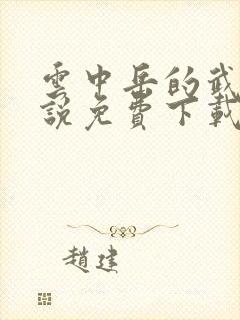 雲中岳的武
說免費下載
趙建